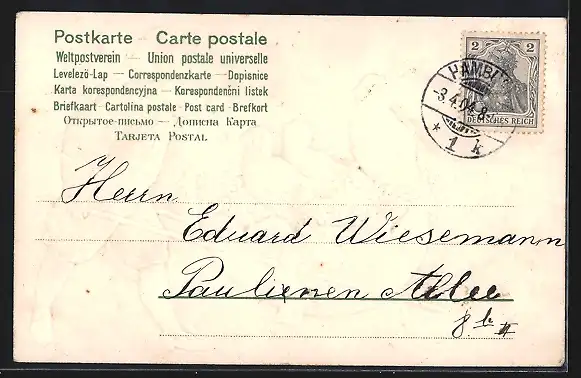 Postkarte — Carte postale
Weltpostverein — Union postale universelle
Levelező-Lap — Correspondenzkarte — Dopisnice
Karta korespondencyjna — Korespondenční listek
Briefkaart - Cartolina postale - Post card - Brefkort
Открытое-письмо — Дописна Карта
TARJETA POSTAL
2 2
DEUTSCHES REICH
HAMB
-3.4.04.8-
* 1 k
Herrn
Eduard Wiesemann
Paulienen Allee
8 b II